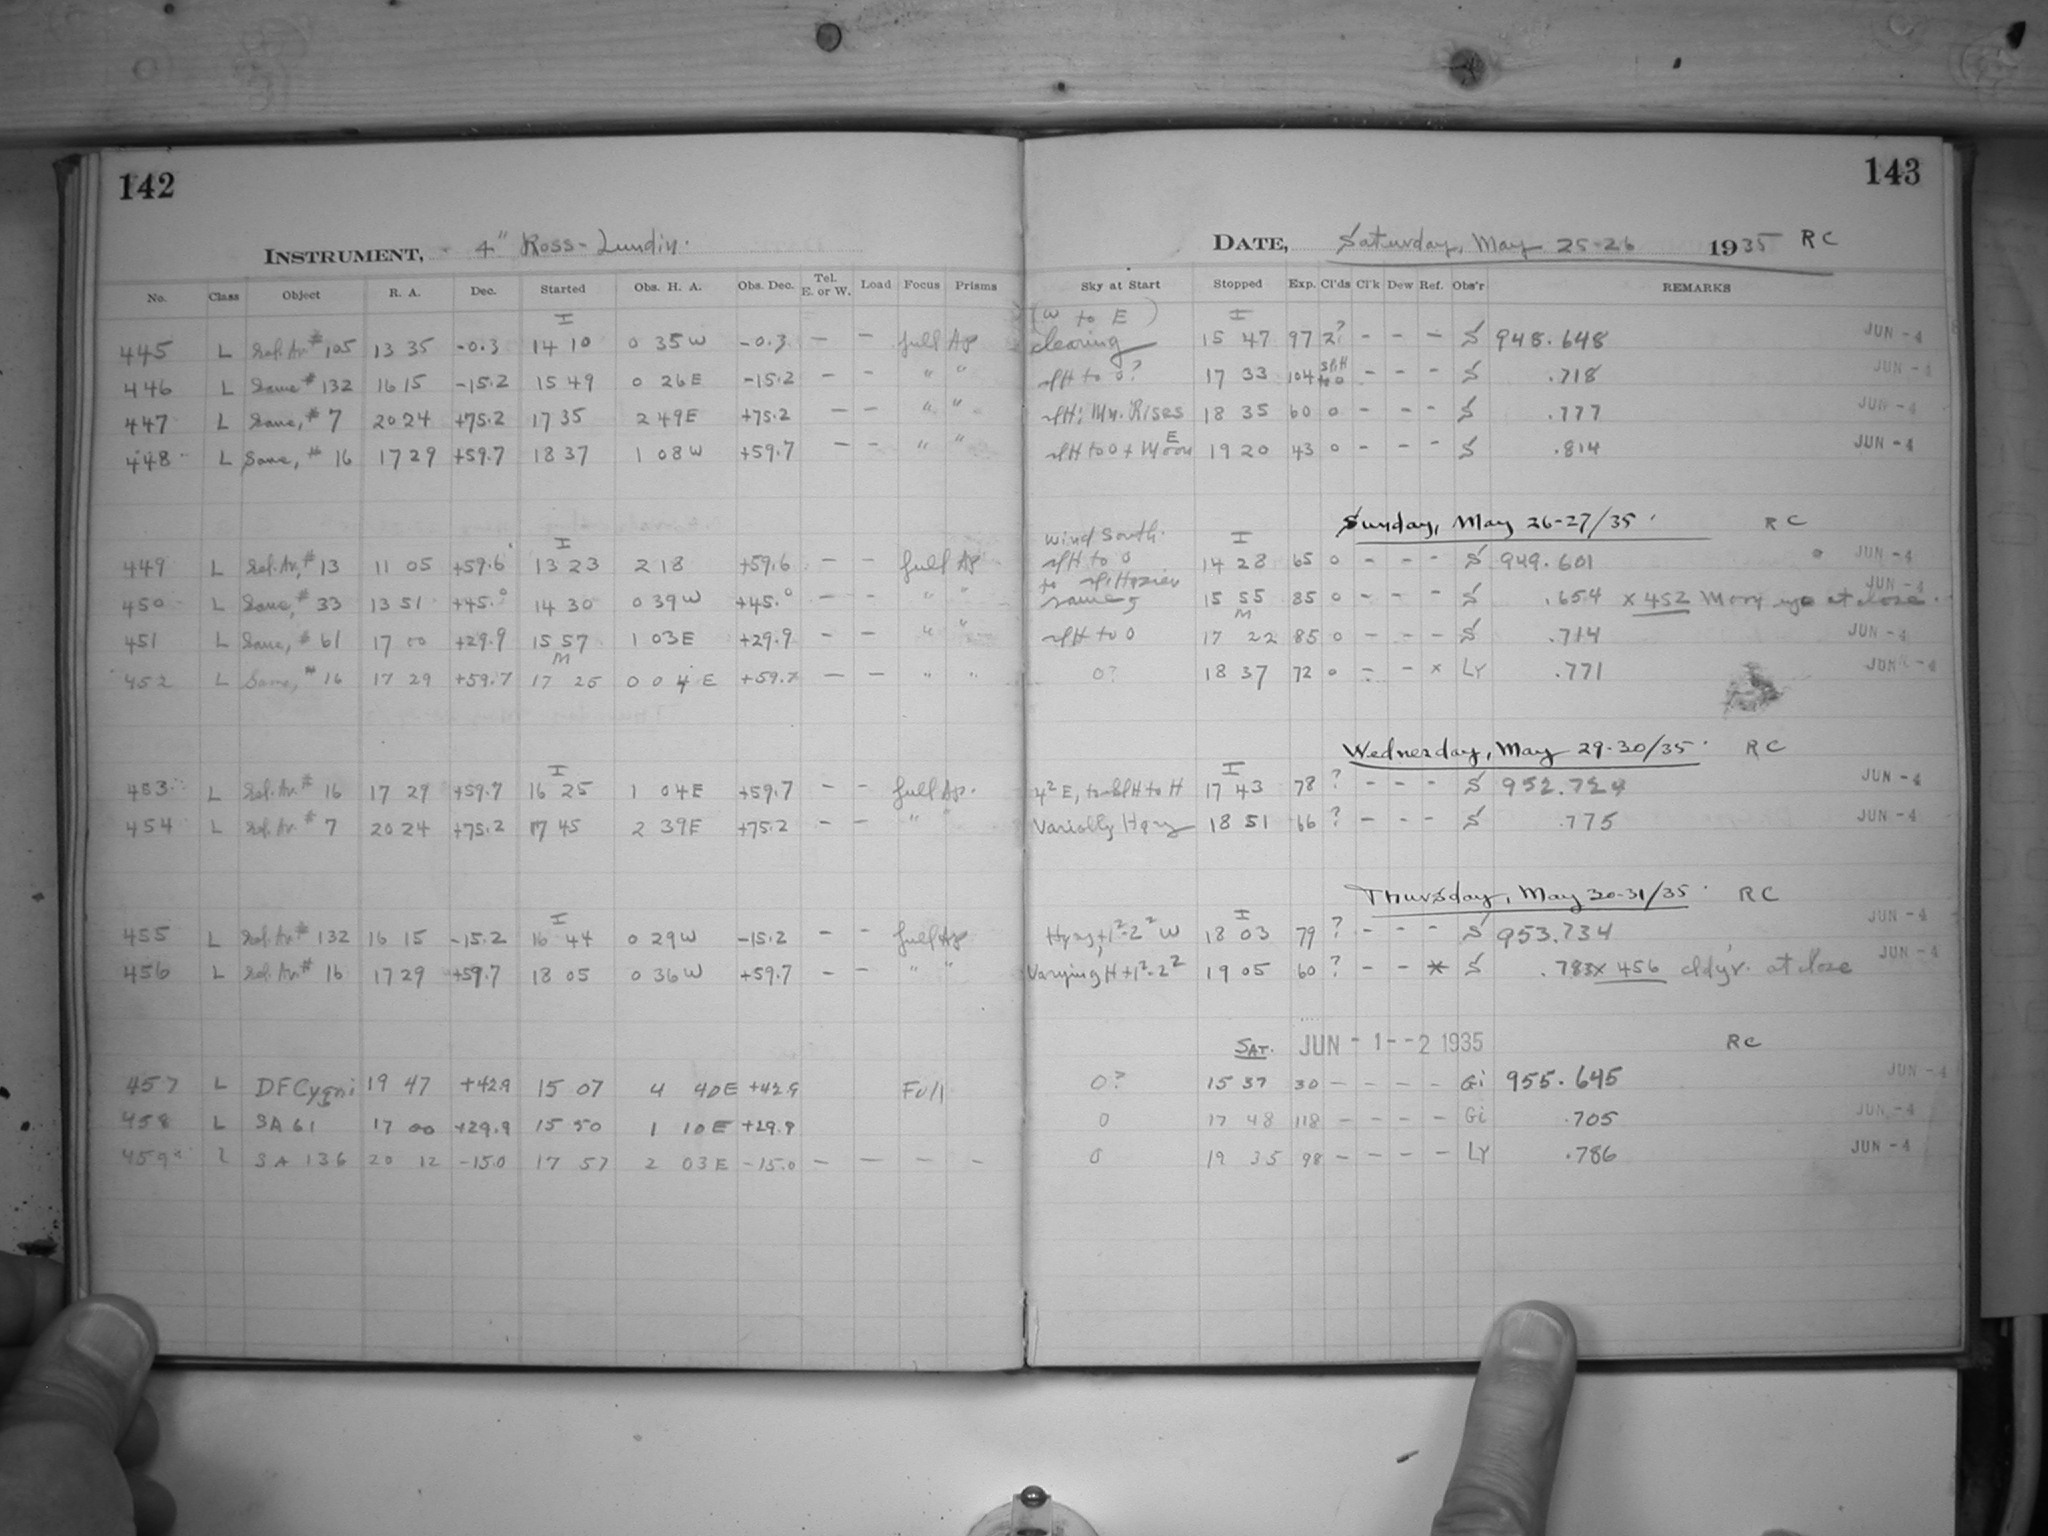 142
INSTRUMENT, 4" Ross-Lundin.
No. Class Object R. A. Dec. Started Obs. H. A. Obs. Dec. Tel. E. or W. Load Focus Prisms
I
445 L Sel. Ar. # 105 13 35 -0.3 14 10 0 35 W -0.3 — — full Ap
446 L Same # 132 16 15 -15.2 15 49 0 26 E -15.2 — — " "
447 L Same, # 7 20 24 +75.2 17 35 2 49 E +75.2 — — " "
448 L Same, # 16 17 29 +59.7 18 37 1 08 W +59.7 — — " "
I
449 L Sel. Ar. # 13 11 05 +59.6 13 23 2 18 +59.6 — — full Ap
450 L Same, # 33 13 51 +45.0 14 30 0 39 W +45.0 — — " "
451 L Same, # 61 17 00 +29.9 15 57 1 03 E +29.9 — — " "
M
452 L Same, # 16 17 29 +59.7 17 25 0 04 E +59.7 — — " "
I
453 L Sel. Ar. # 16 17 29 +59.7 16 25 1 04 E +59.7 — — full Ap.
454 L Sel. Ar. # 7 20 24 +75.2 17 45 2 39 E +75.2 — — " "
I
455 L Sel. Ar. # 132 16 15 -15.2 16 44 0 29 W -15.2 — — full Ap
456 L Sel. Ar. # 16 17 29 +59.7 18 05 0 36 W +59.7 — — " "
457 L DF Cygni 19 47 +42.9 15 07 4 40 E +42.9 Full
458 L SA 61 17 00 +29.9 15 50 1 10 E +29.9
459 L SA 136 20 12 -15.0 17 57 2 03 E -15.0 — — — —
143
DATE, Saturday, May 25-26 1935 RC
Sky at Start Stopped Exp. Cl'ds Cl'k Dew Ref. Obs'r REMARKS
(W to E) I
clearing 15 47 97 2? — — — S 948.648 JUN -4
slH to 0? 17 33 104 slH to 0 — — — S .718 JUN -4
slH; Mn. Rises 18 35 60 0 — — — S .777 JUN -4
slH to 0 + Moon E 19 20 43 0 — — — S .814 JUN -4
Sunday, May 26-27/35 RC
wind South. I
slH to 0 14 28 65 0 — — — S 949.601 JUN -4
to sl. Hazier
same 15 55 85 0 — — — S .654 x 452 Moon up at close. JUN -4
M
slH to 0 17 22 85 0 — — — S .714 JUN -4
0? 18 37 72 0 — — x LY .771 JUN -4
Wednesday, May 29-30/35 RC
I
17 43 78 ? — — — S JUN -4
Variably Hazy 18 51 66 ? — — — S .775 JUN -4
Thursday, May 30-31/35 RC
I
Hazy + 1²-2² W 18 03 79 ? — — — S 953.734 JUN -4
Varying H + 1²-2² 19 05 60 ? — — * S .783 x 456 cldy'r. at close JUN -4
SAT. JUN -1--2 1935 RC
0? 15 37 30 — — — — Gi 955.645 JUN -4
0 17 48 118 — — — — Gi .705 JUN -4
0 19 35 98 — — — — LY .786 JUN -4